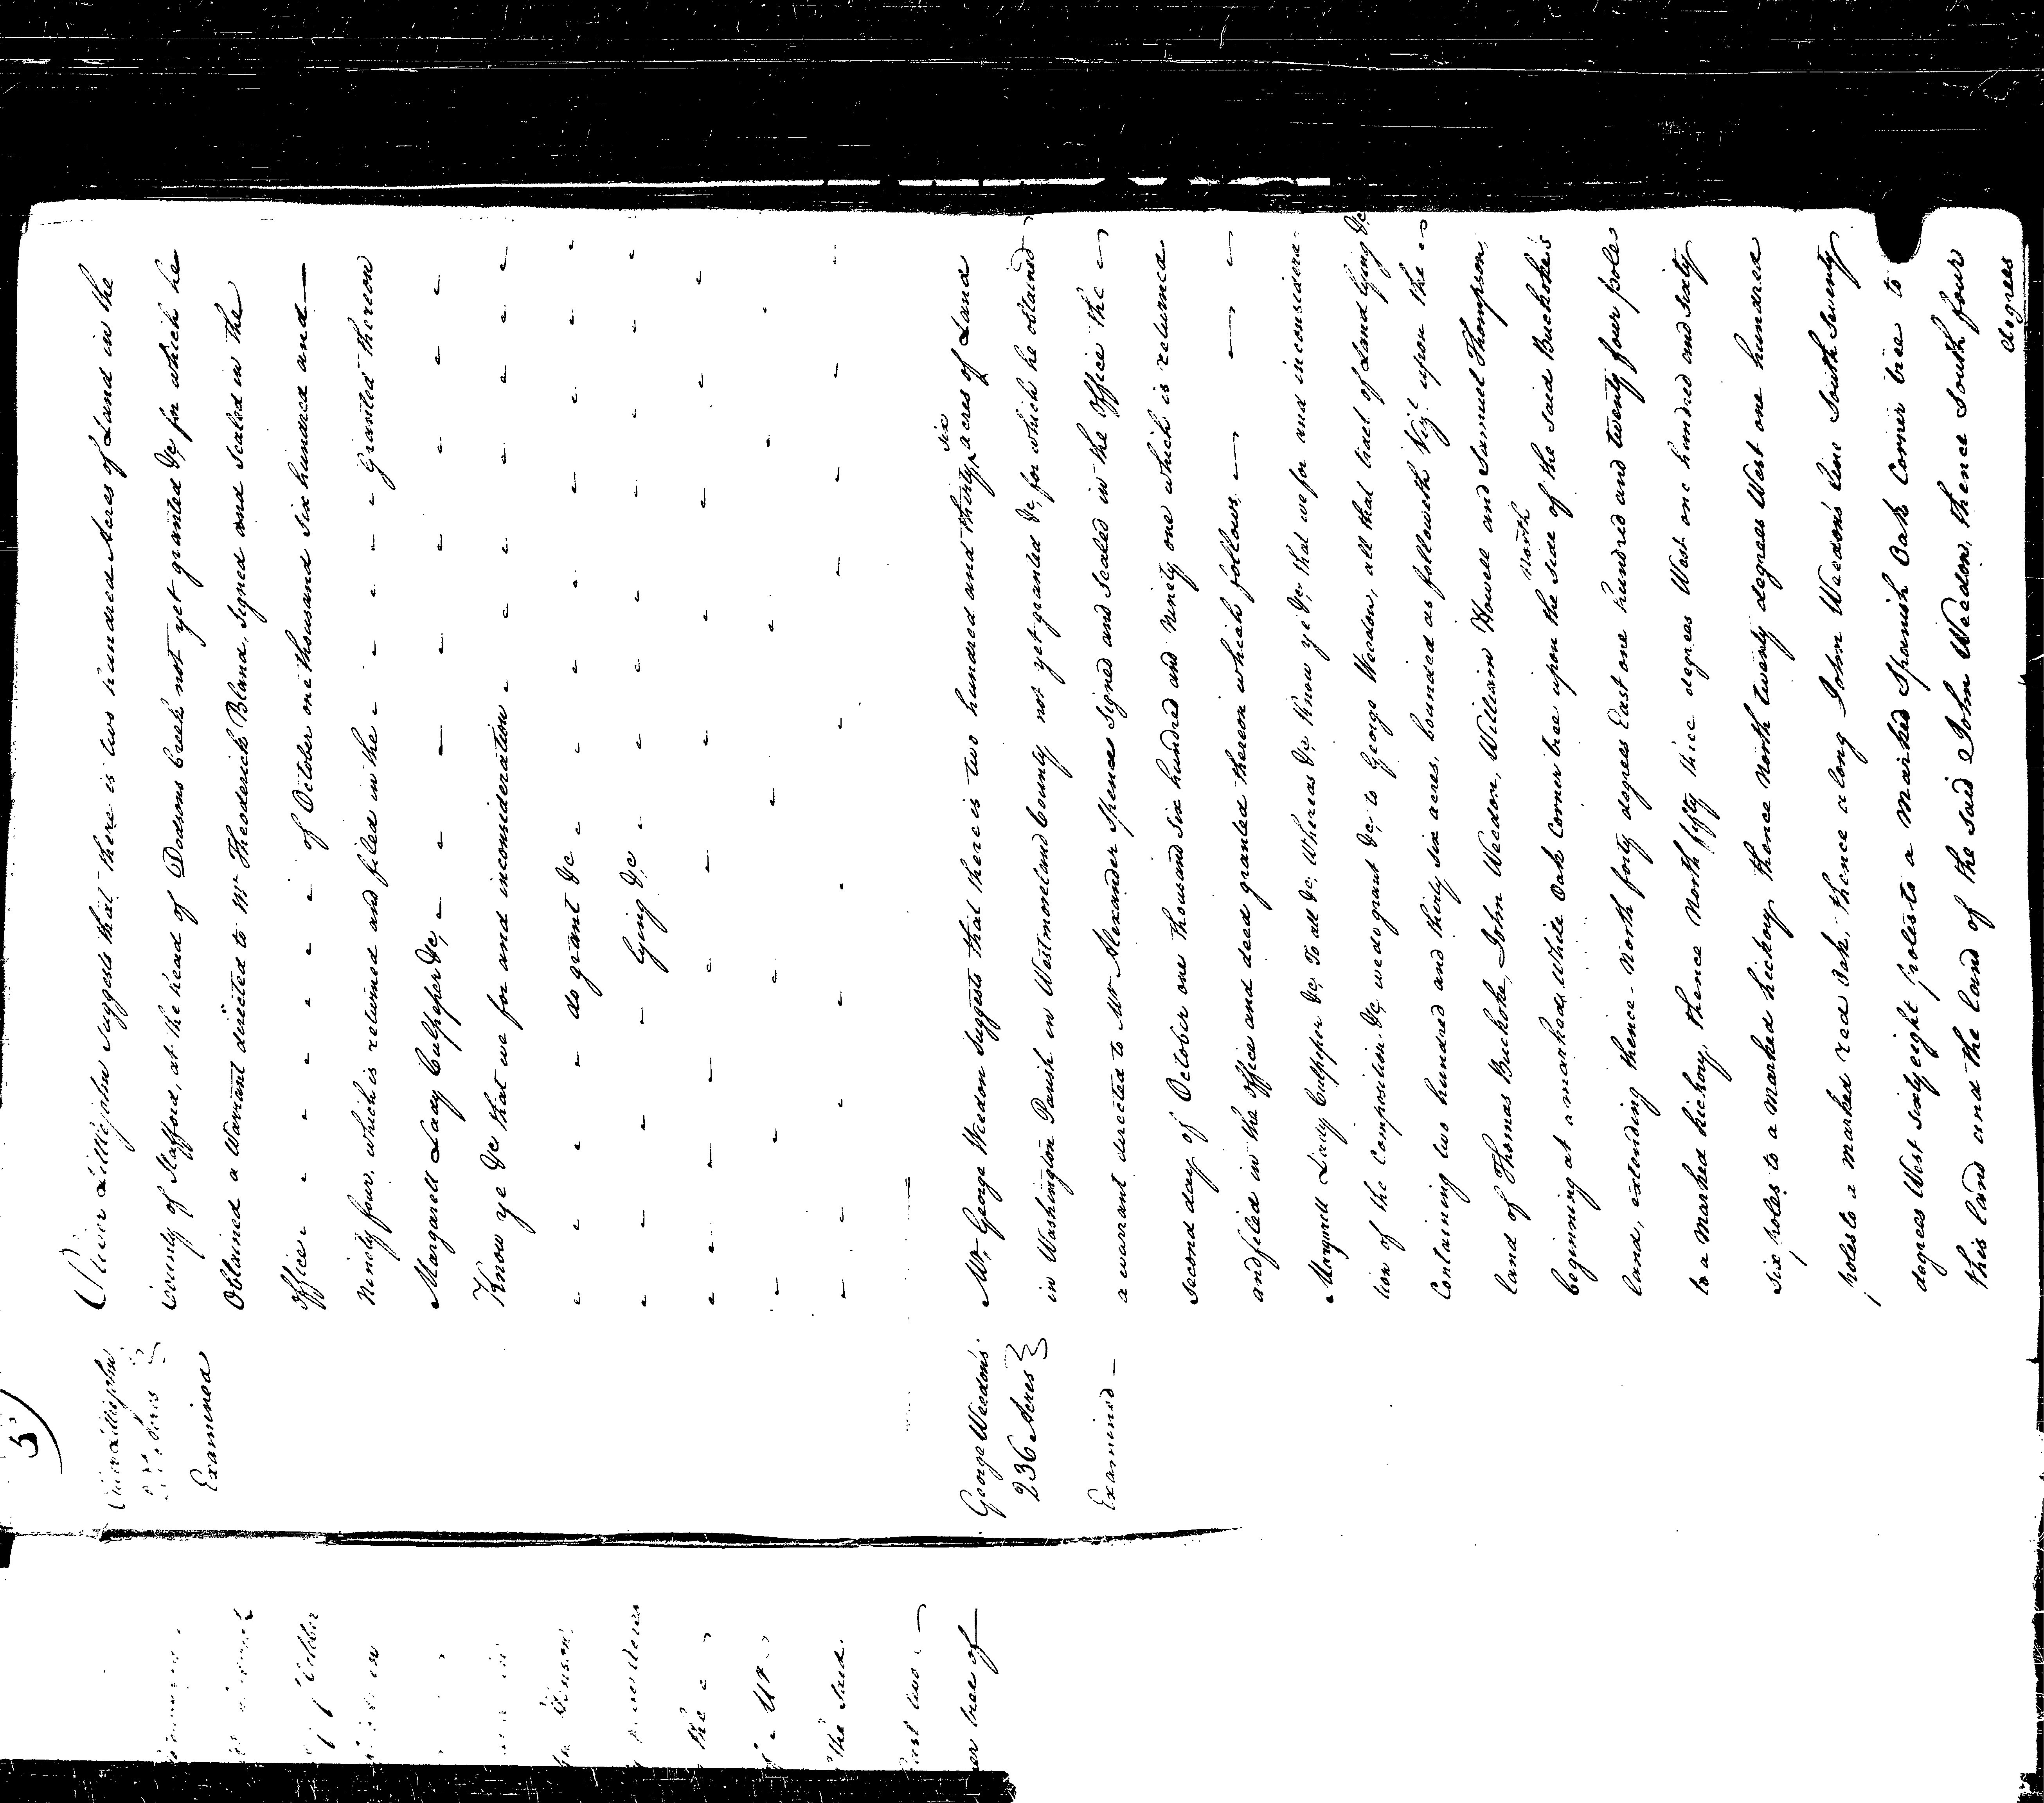 5
Oliver Lillisjohn suggests that there is two hundred Acres of Land in the
County of Stafford, at the head of Dodsons Creek not yet granted &c, for which he
Obtained a Warrant directed to Mr Theoderick Bland, signed and sealed in the
Office - - - - - - of October one thousand six hundred and —
Ninety four, which is returned and filed in the - - - - Granted thereon
Margarett Lady Culpeper &c, - - - - - - -
Know ye &c, that we for and inconsideration - - - - - - -
- - - - do grant &c - - - - - - -
- - - - lying &c - - - - - - -
Examined
Mr. George Weedon suggests that there is two hundred and thirty six acres of Land
in Washington Parish in Westmoreland County not yet granted &c, for which he obtained
a warrant directed to Mr Alexander Spence signed and sealed in the Office the -
second day of October one thousand six hundred and Ninety one which is returned
and filed in the Office and deed granted thereon which follows. — — —
Margarett Lady Culpeper &c, To all &c, Whereas &c, Know ye &c, that we for and inconsidera-
tion of the Composition &c, we do grant &c, to George Weedon, all that tract of Land lying &c
Containing two hundred and thirty six acres, bounded as followeth Viz upon the -
land of Thomas Buckoke, John Weedon, William Howell and Samuel Thompson,
beginning at a marked White Oak Corner tree upon the North side of the said Buckoke's
land, extending thence - North forty degrees East one hundred and twenty four poles
to a marked hickory, thence North fifty three degrees West one hundred and sixty
six poles to a marked hickory, thence North twenty degrees West one hundred
poles to a marked red Oak, thence along John Weedon's line South Seventy
degrees West sixty eight poles to a marked Spanish Oak Corner tree to
this land and the land of the said John Weedon, thence South four
degrees
George Weedon's
236 Acres
Examined —
October
the
the said.
East two
er tree of